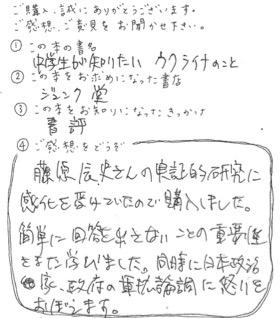 ご購入、誠にありがとうございます。
ご感想、ご意見をお聞かせ下さい。
① この本の書名
中学生が知りたい ウクライナのこと
② この本をお求めになった書店
ジュンク堂
③ この本をお知りになったきっかけ
書評
④ ご感想をどうぞ
藤原辰史さんの実証的研究に
感化を受けていたので購入しました。
簡単に回答を出さないことの重要性
をまた学びました。同時に日本政治
家、政府の 論調に怒りを
おぼえます。